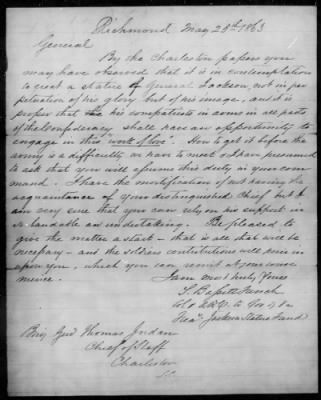 Richmond May 28th 1863
General
By the Charleston papers you
may have observed that it is in contemplation
to erect a statue of General Jackson, not in per
petuation of his glory but of his image, and it is
proper that his compatriots in arms in all parts
of the Confederacy shall have an opportunity to
engage in this work of love. How to get it before the
army is a difficulty we have to meet & I have presumed
to ask that you will assume this duty in your com
mand. I have the mortification of not having the
acquaintance of your distinguished Chief but I
am very sure that you can rely on his support in
so laudable an undertaking. Be pleased to
give the matter a start - that is all that will be
necessary - and the soldiers contributions will pour in
upon you, which you can remit at your conve
nience.
I am most truly Yours
S. Bassett French
Col & A.D.C. to Gov of Va
Treas. Jackson Statue Fund
Brig Genl Thomas Jordan
Chief of Staff
Charleston
S.C.